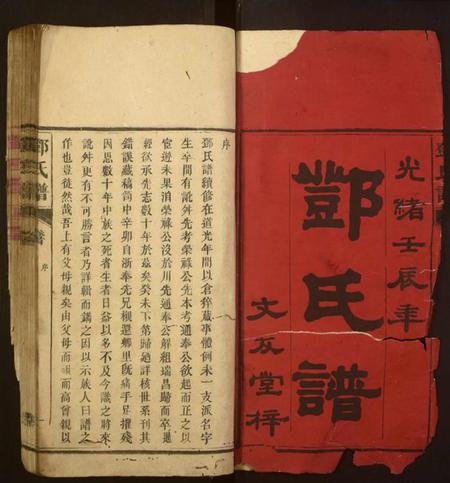 光緒壬辰年
鄧氏譜
文友堂梓
序
鄧氏譜續修在道光年間以倉猝蕆事體例未一支派名字
生卒間有訛舛先考榮祿公先本考通奉公欲起而正之以
宦遊未果消榮祿公沒於川先通奉公解組瑞昌歸而卒遜
經欲承先志數十年於茲矣癸未下第歸趨詳核世系刊其
錯誤藏稿笥中辛卯自浙奉先兄櫬還鄉里旣痛手足摧殘
因思數十年中族之死者生者日益以多不及今識之將來
訛舛更有不可勝言者乃詳輯而鐫之因以示族人曰譜之
作也豈徒然哉吾上有父母親矣由父母而祖而高曾親以
鄧氏譜
序